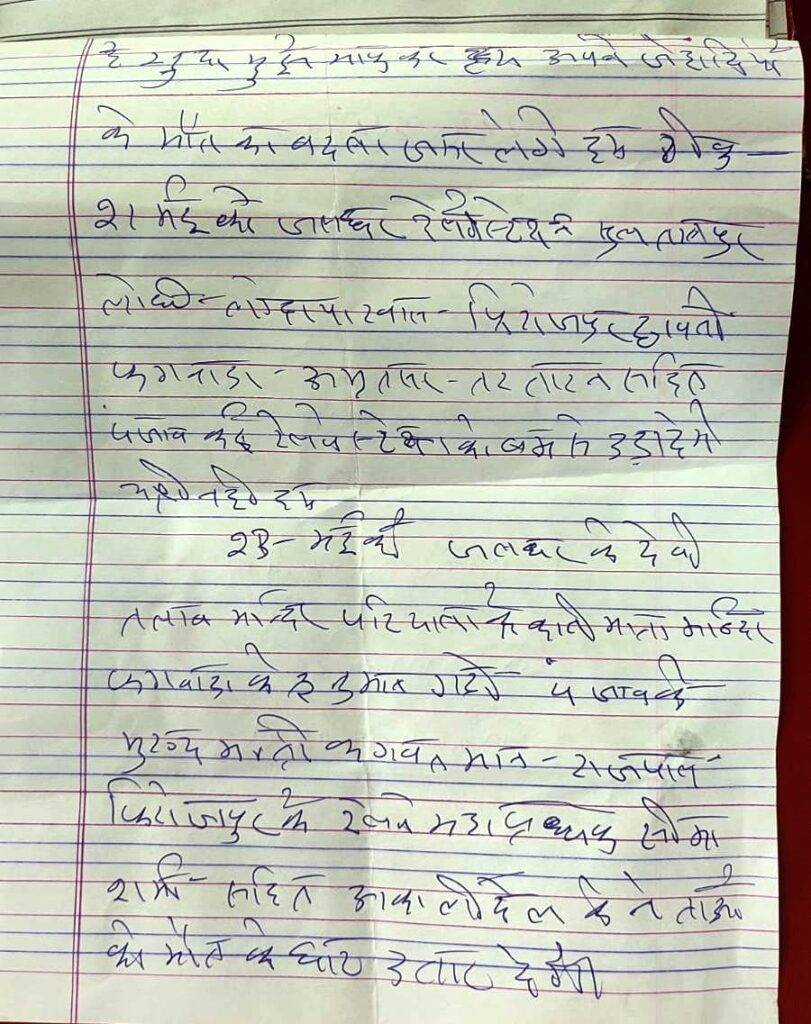 है खुदा मुझे माफ कर हम अपने जेहादियो
के मौत का बदला जरूर लेगे हम ठीक -
21 मई को जलन्धर रेलवे स्टेशन सुलतानपुर
लोधी - लोहदा खास - फिरोजपुर छावनी
फगवाडा - अमृतसर - तरनतारन सहित
पंजाब कई रेलवे स्टेशन को बम से उड़ा देगे
यही नही हम
23 - मई की जलन्धर के देवी
तलाब मन्दिर पटियाला के काली माता मन्दिर
फगवाडा के हनुमान गढी पंजाब के
मुख्य मन्त्री भगवंत मान - राज्यपाल
फिरोजपुर के रेलवे महाप्रबन्धक सीमा
शर्मा - सहित अकाली दल के नेताओ
को मौत के घाट उतार देगे